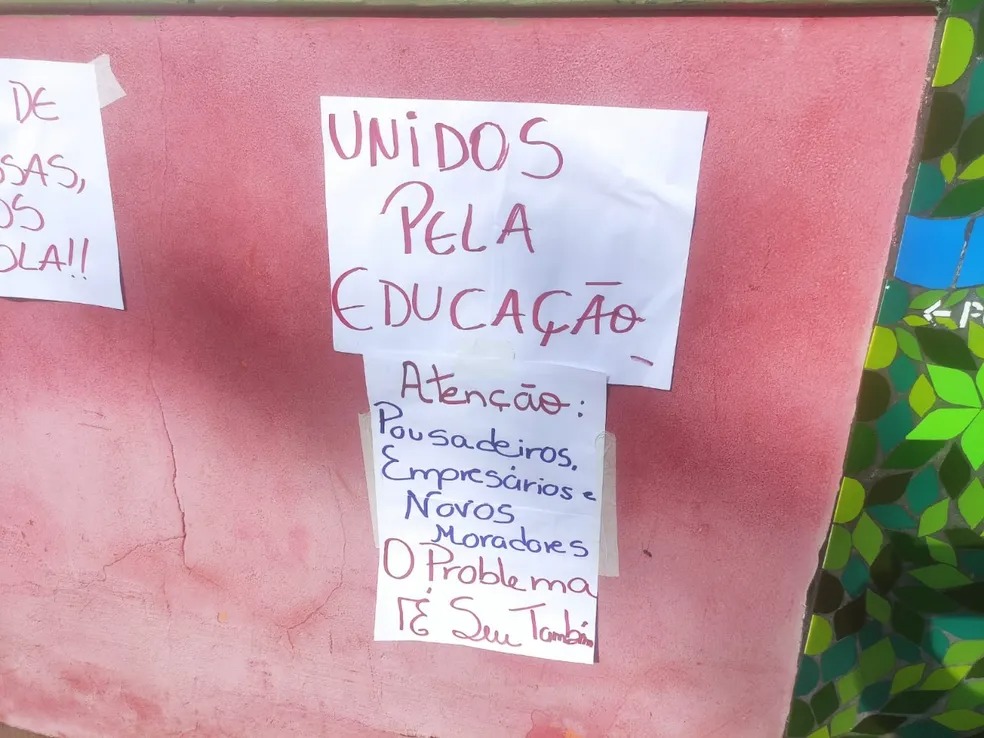 DE
SAS,
OS
OLA!!
UNiDOS
PELA
EDUCAÇÃO
Atenção:
Pousadeiros,
Empresários e
Novos
Moradores
O Problema
É Seu Também
←